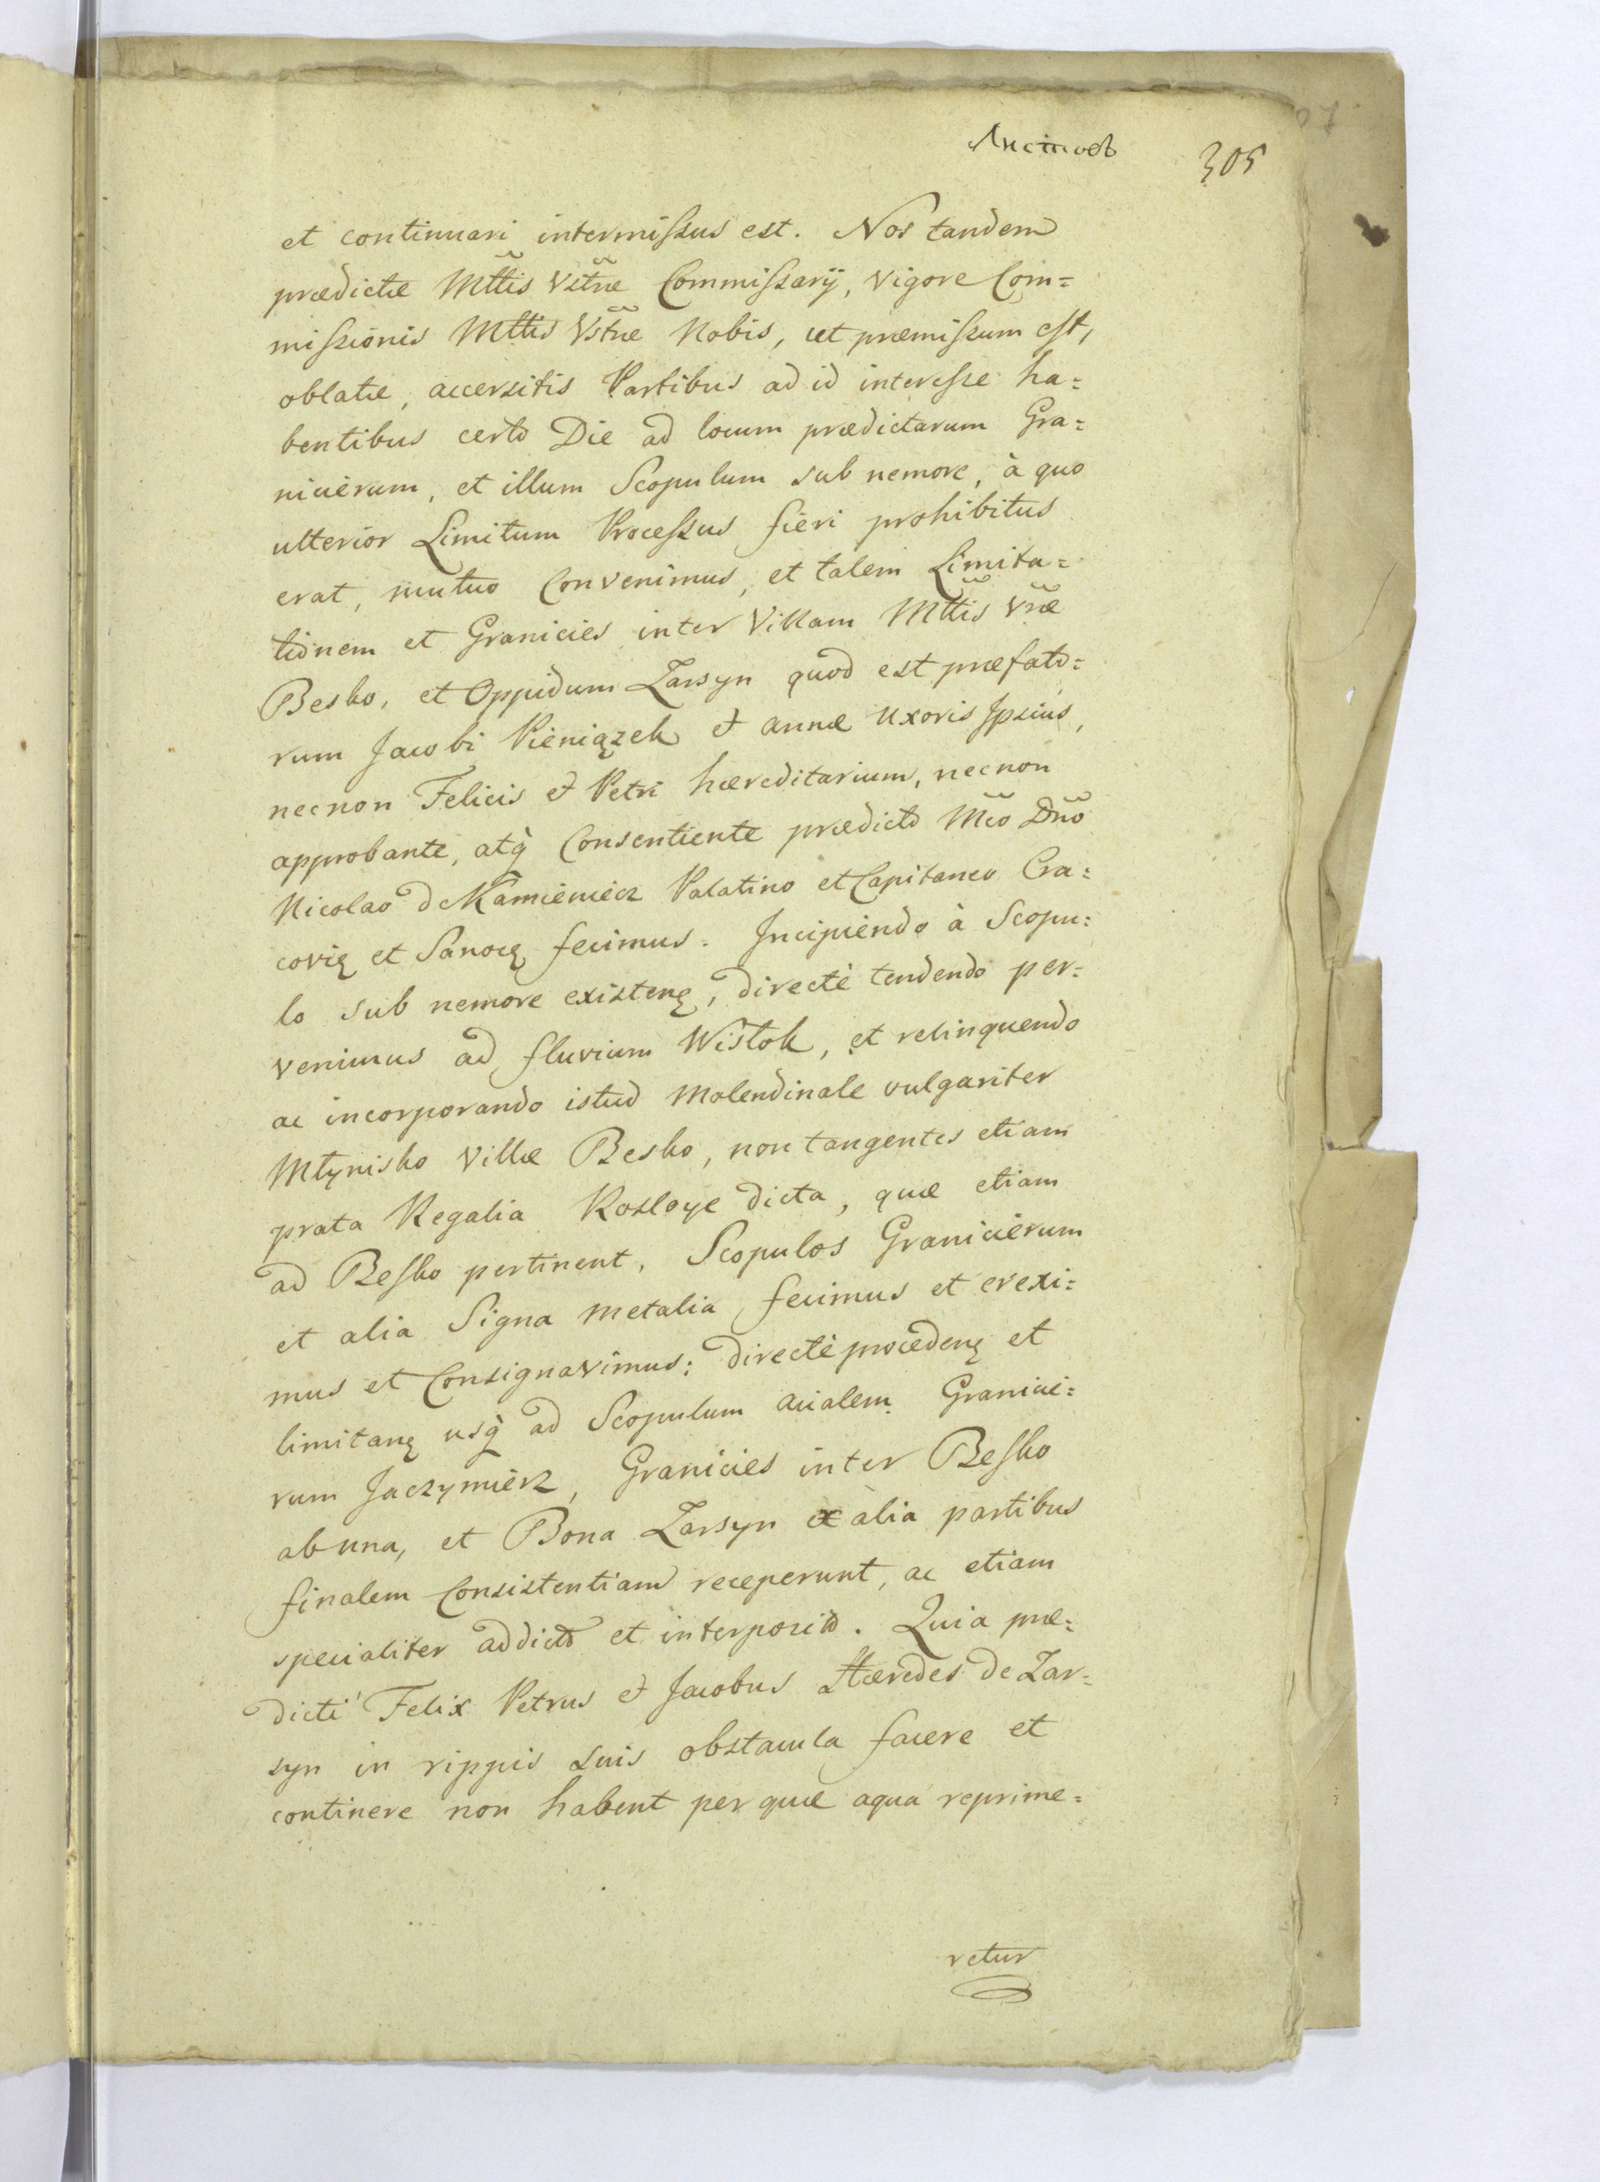 Листовъ
305
et continuari intermiſsus est. Nos tandem
prædictæ Mttis Vstræ Commiſsarij, vigore Com=
miſsionis Mttis Vstræ Nobis, ut præmiſsum eſt,
oblatæ, accersitis Partibus ad id intereſse ha=
bentibus certo Die ad locum prædictarum Gra=
nicierum, et illum Scopulum sub nemore, à quo
ulterior Limitum Proceſsus fieri prohibitus
erat, mutuo Convenimus, et talem Limita=
tionem et Granicies inter Villam Mttis Vræ
Besko, et Oppidum Zarsyn quod est præfato=
rum Jacobi Pieniązek et annæ Uxoris Ipsius,
necnon Felicis et Petri hæreditarium, necnon
approbante, atq̀ Consentiente prædicto Mco Dno
Nicolao de Kamieniecz Palatino et Capitaneo Cra=
covię et Sanocę fecimus. Incipiendo à Scopu=
lo sub nemore existenę, directè tendendo per=
venimus ad fluvium Wistok, et relinquendo
ac incorporando istud Molendinale vulgariter
Młynisko Villæ Besko, non tangentes etiam
prata Regalia Rosloye dicta, quæ etiam
ad Beſko pertinent, Scopulos Granicierum
et alia Signa metalia fecimus et erexi=
mus et Consignavimus: directè procedenę et
limitanę usq̀ ad Scopulum acialem Granicie=
rum Jaczymiērz, Granicies inter Beſko
ab una, et Bona Zarsyn ex alia partibus
finalem Consistentiam receperunt, ac etiam
specialiter addicto et interposito. Quia præ=
dicti Felix Petrus et Jacobus Hæredes de Zar=
syn in rippis suis obstacula facere et
continere non habent per quæ aqua reprime=
retur